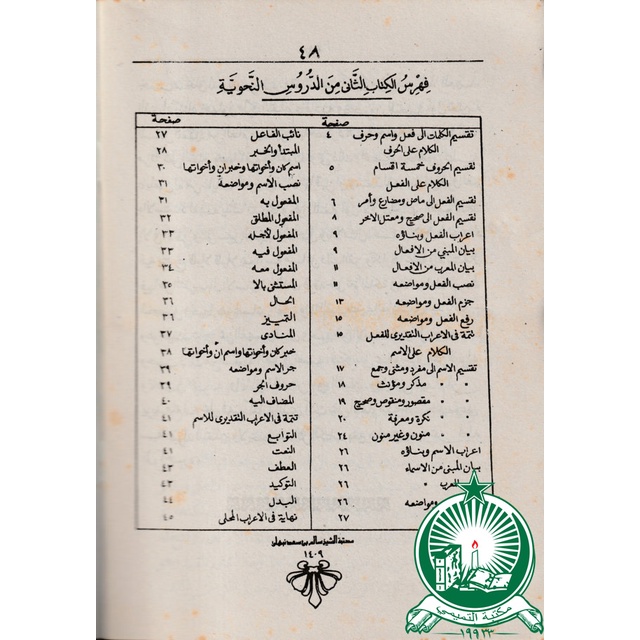 ٤٨
فهرس الكتاب الثاني من الدروس النحوية
صفحة
٤ تقسيم الكلمات الى فعل واسم وحرف
الكلام على الحرف
٥ تقسيم الحروف خمسة اقسام
الكلام على الفعل
٦ تقسيم الفعل الى ماض ومضارع وأمر
٨ تقسيم الفعل الى صحيح ومعتل الاخر
اعراب الفعل وبناؤه
٩ بيان المبنى من الافعال
١١ بيان المعرب من الافعال
نصب الفعل ومواضعه
١٣ جزم الفعل ومواضعه
١٥ رفع الفعل ومواضعه
١٥ تتمة فى الاعراب التقديرى للفعل
الكلام على الاسم
١٧ تقسيم الاسم الى مفرد ومثنى وجمع
١٨ مذكر ومؤنث
١٩ مقصور ومنقوص وصحيح
٢٠ نكرة ومعرفة
٢٤ منون وغير منون
٢٦ اعراب الاسم وبناؤه
٢٦ بيان المبنى من الاسماء
٢٦ المعرب
٢٦ ومواضعه
٢٧
صفحة
٢٧ نائب الفاعل
٢٨ المبتدأ والخبر
٣٠ اسم كان وأخواتها وخبر ان وأخواتها
٣١ نصب الاسم ومواضعه
٣١ المفعول به
٣٢ المفعول المطلق
٣٣ المفعول لأجله
٣٣ المفعول فيه
٣٤ المفعول معه
٣٥ المستثنى بالا
٣٦ الحال
٣٦ التمييز
٣٧ المنادى
٣٨ خبر كان وأخواتها واسم ان وأخواتها
٣٩ جر الاسم ومواضعه
٣٩ حروف الجر
٤٠ المضاف اليه
٤١ تتمة فى الاعراب التقديرى للاسم
٤١ التوابع
٤١ النعت
٤٣ العطف
٤٣ التوكيد
٤٤ البدل
٤٥ نهاية فى الاعراب المحلى
مكتبة الشيخ سالم بن سعد نبهان
١٤٠٩
مكتبة التميمي
١٩٩٣٣